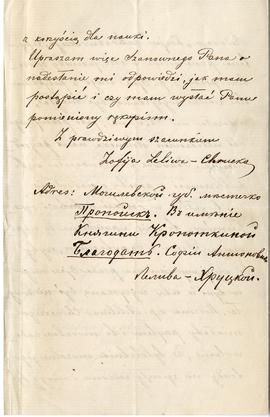 z korzyścią dla nauki.
Upraszam więc Szanownego Pana o
nadesłanie mi odpowiedzi, jak mam
postąpić i czy mam wysłać Panu
pomieniony rękopism.
Z prawdziwym szacunkiem
Zofija Leliwa-Chrucka
Adres: Могилевской губ. мѣстечко
Пропойскъ. Въ имѣніе
Княгини Кропоткиной
Благодать. Софіи Антоновнѣ
Лелива-Хруцкой.